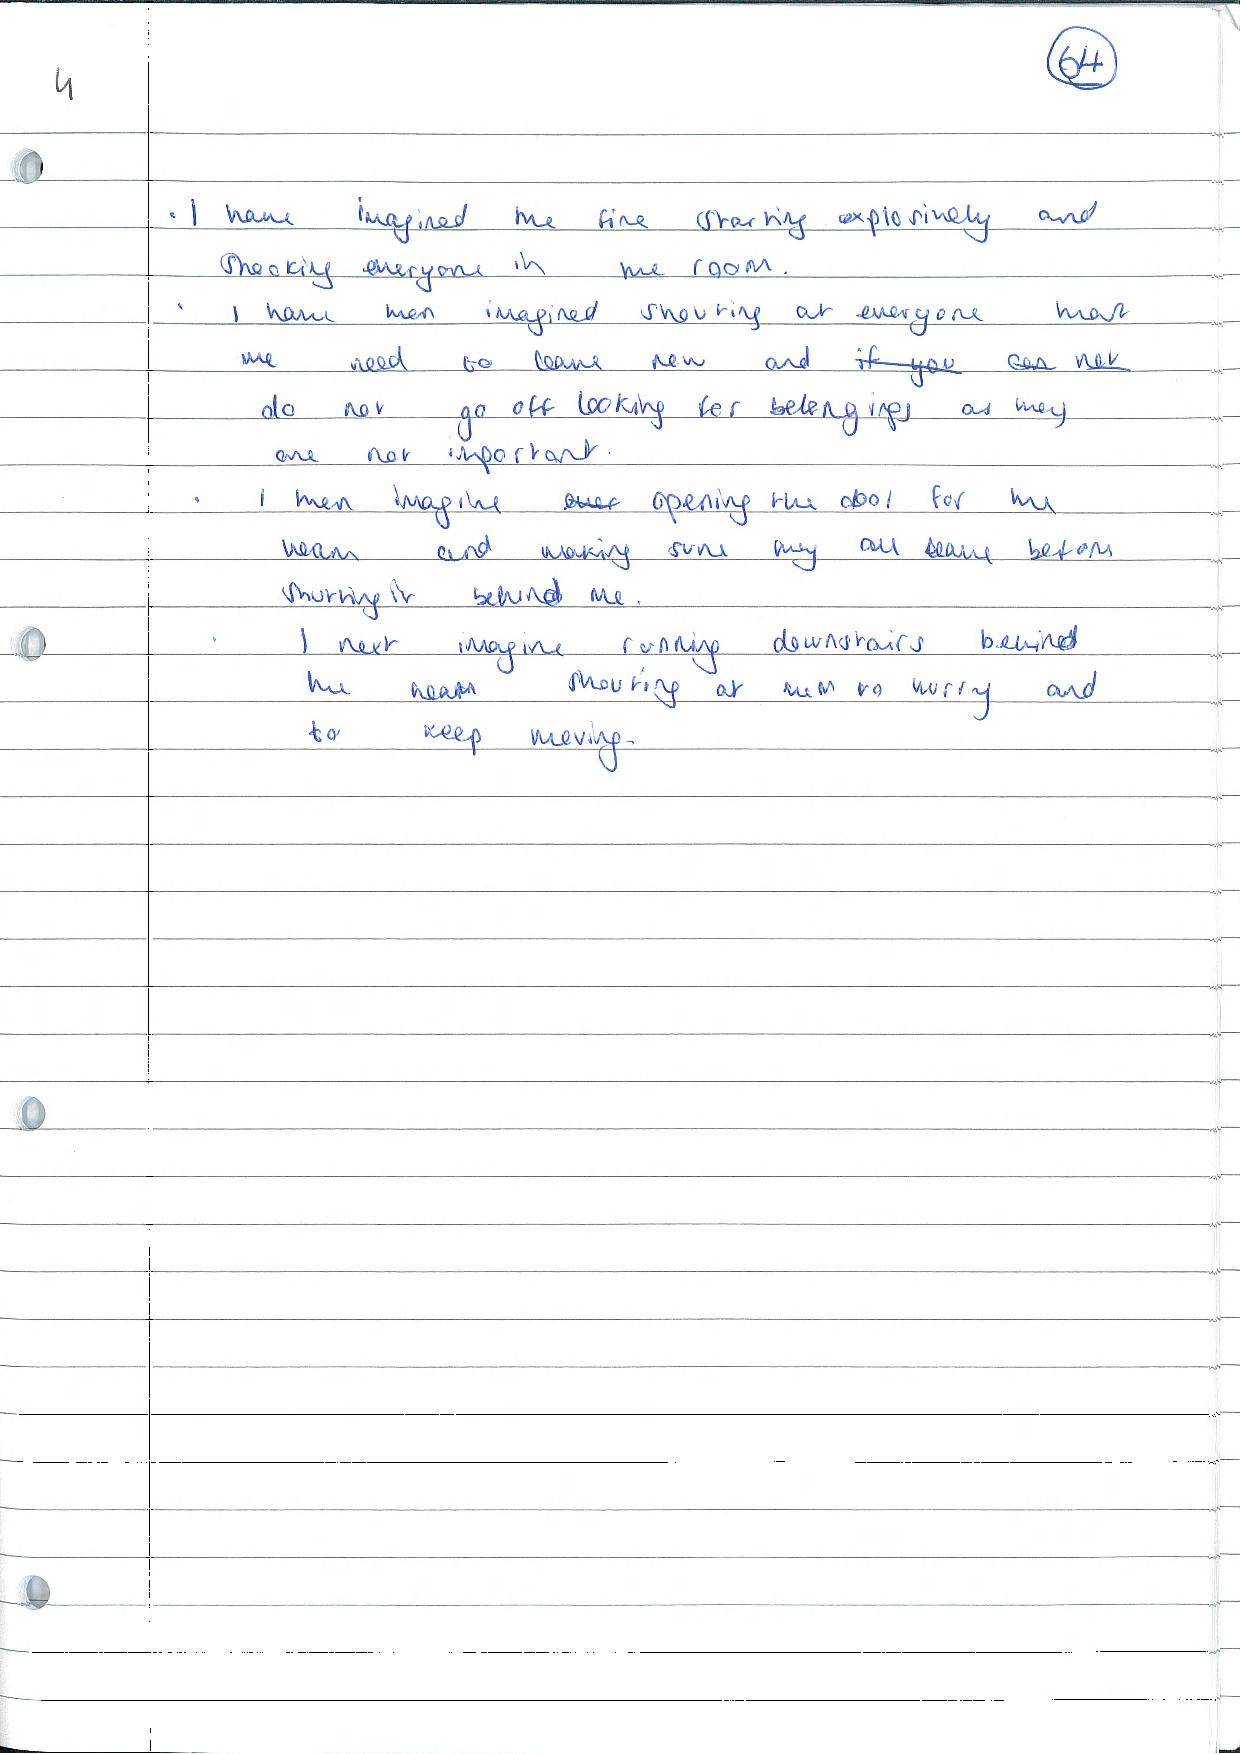 64
4
· I have imagined the fire starting explosively and
shocking everyone in the room.
· I have then imagined shouting at everyone that
we need to leave now and if you can not
do not go off looking for belongings as they
are not important.
· I then imagine over opening the door for the
team and making sure they all leave before
shutting it behind me.
· I next imagine running downstairs behind
the team shouting at them to hurry and
to keep moving.